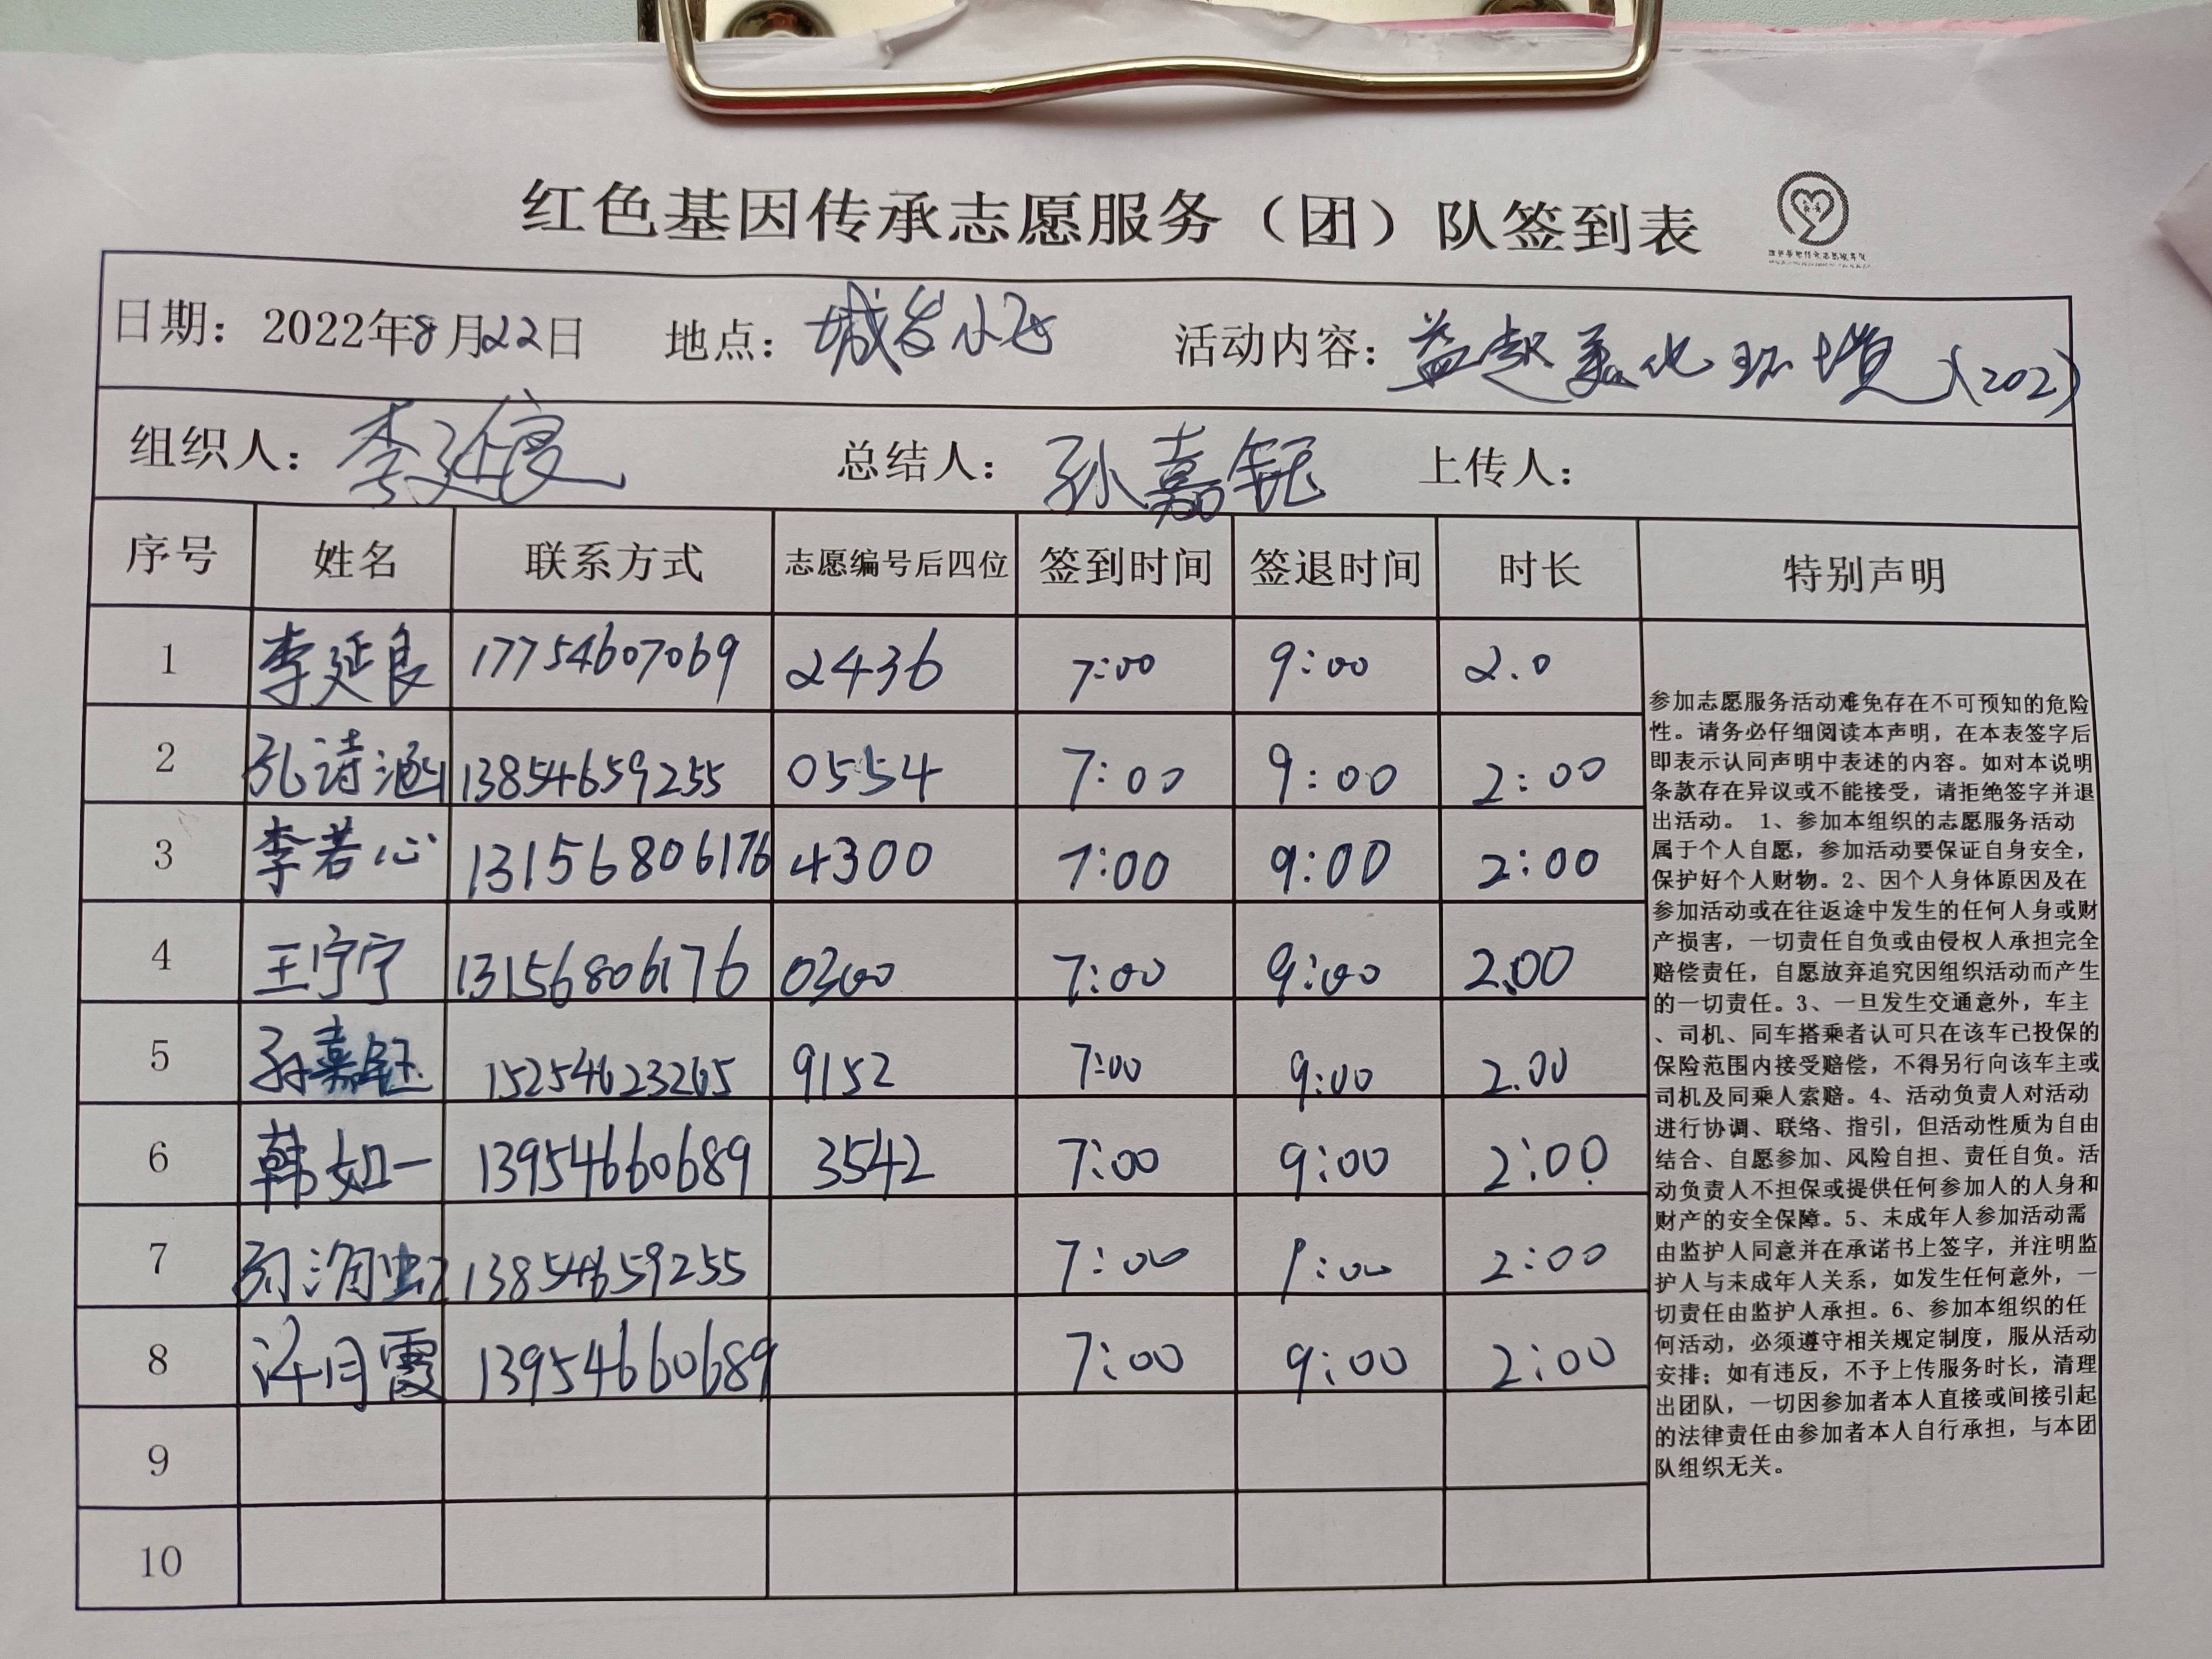 红色基因传承志愿服务（团）队签到表
日期：2022年8月22日 地点：城发小区 活动内容：益起美化环境(202)
组织人：李延良 总结人：孙嘉钰 上传人：
序号 姓名 联系方式 志愿编号后四位 签到时间 签退时间 时长 特别声明
1 李延良 17754607069 2436 7:00 9:00 2.0
2 孔诗涵 13854659255 0554 7:00 9:00 2:00
3 李若心 13156806176 4300 7:00 9:00 2:00
4 王宁宁 13156806176 0300 7:00 9:00 2.00
5 孙嘉钰 15254623265 9152 7:00 9:00 2.00
6 韩如一 13954660689 3542 7:00 9:00 2:00
7 13854659255 7:00 9:00 2:00
8 许月霞 13954660689 7:00 9:00 2:00
9
10
参加志愿服务活动难免存在不可预知的危险
性。请务必仔细阅读本声明，在本表签字后
即表示认同声明中表述的内容。如对本说明
条款存在异议或不能接受，请拒绝签字并退
出活动。 1、参加本组织的志愿服务活动
属于个人自愿，参加活动要保证自身安全，
保护好个人财物。2、因个人身体原因及在
参加活动或在往返途中发生的任何人身或财
产损害，一切责任自负或由侵权人承担完全
赔偿责任，自愿放弃追究因组织活动而产生
的一切责任。3、一旦发生交通意外，车主
、司机、同车搭乘者认可只在该车已投保的
保险范围内接受赔偿，不得另行向该车主或
司机及同乘人索赔。4、活动负责人对活动
进行协调、联络、指引，但活动性质为自由
结合、自愿参加、风险自担、责任自负。活
动负责人不担保或提供任何参加人的人身和
财产的安全保障。5、未成年人参加活动需
由监护人同意并在承诺书上签字，并注明监
护人与未成年人关系，如发生任何意外，一
切责任由监护人承担。6、参加本组织的任
何活动，必须遵守相关规定制度，服从活动
安排；如有违反，不予上传服务时长，清理
出团队，一切因参加者本人直接或间接引起
的法律责任由参加者本人自行承担，与本团
队组织无关。